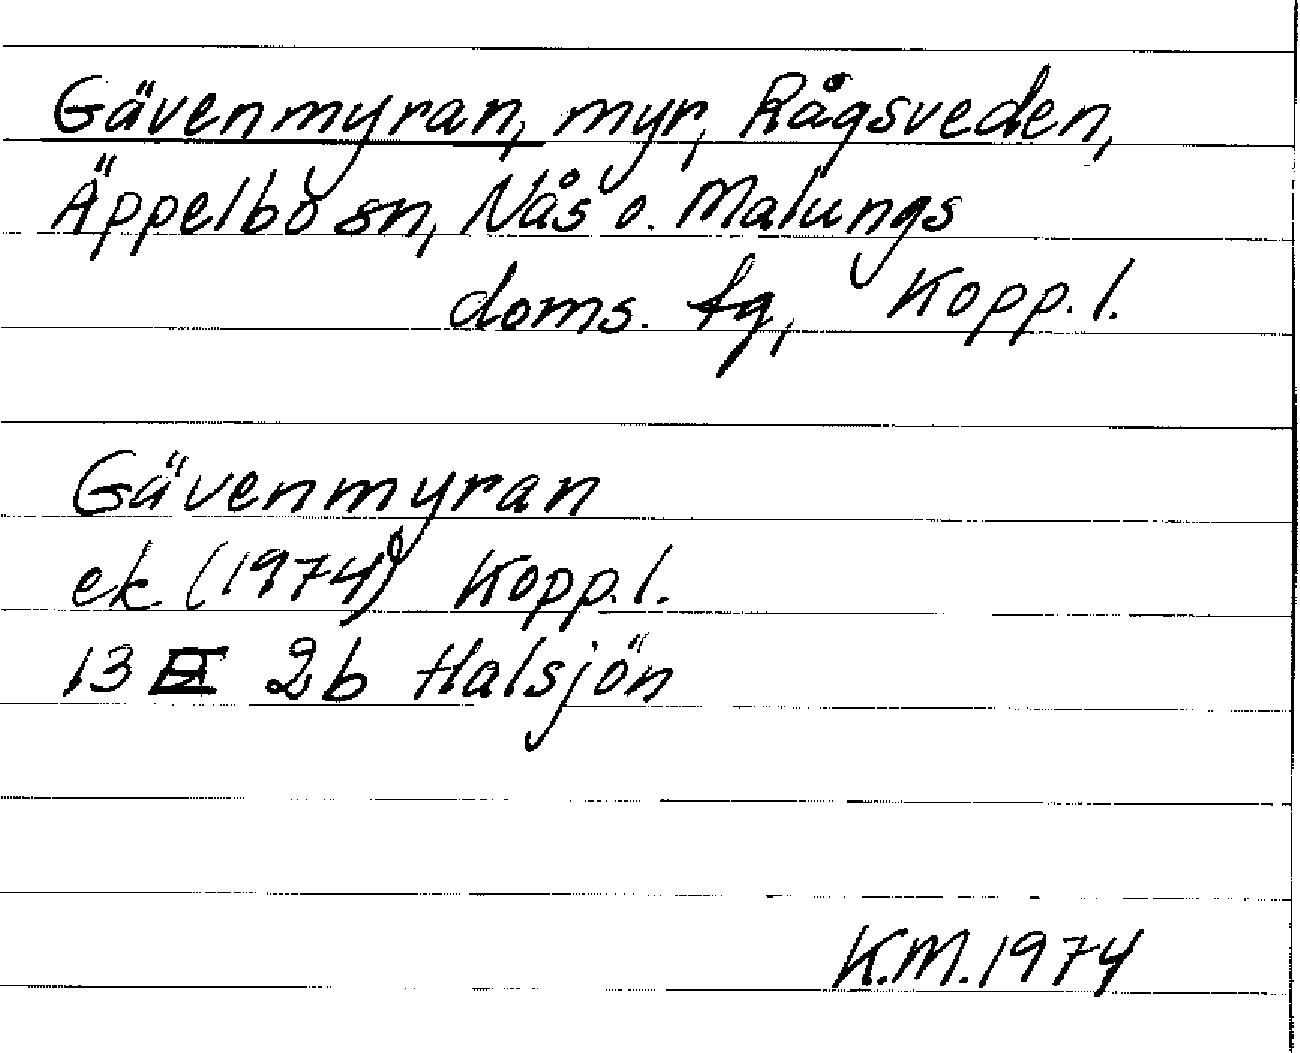 Gävenmyran, myr, Rågsveden,
Äppelbo sn, Nås o. Malungs
doms. fg, Kopp. l.
Gävenmyran
ek (1974) Kopp. l.
13 E 2b Halsjön
K.M. 1974